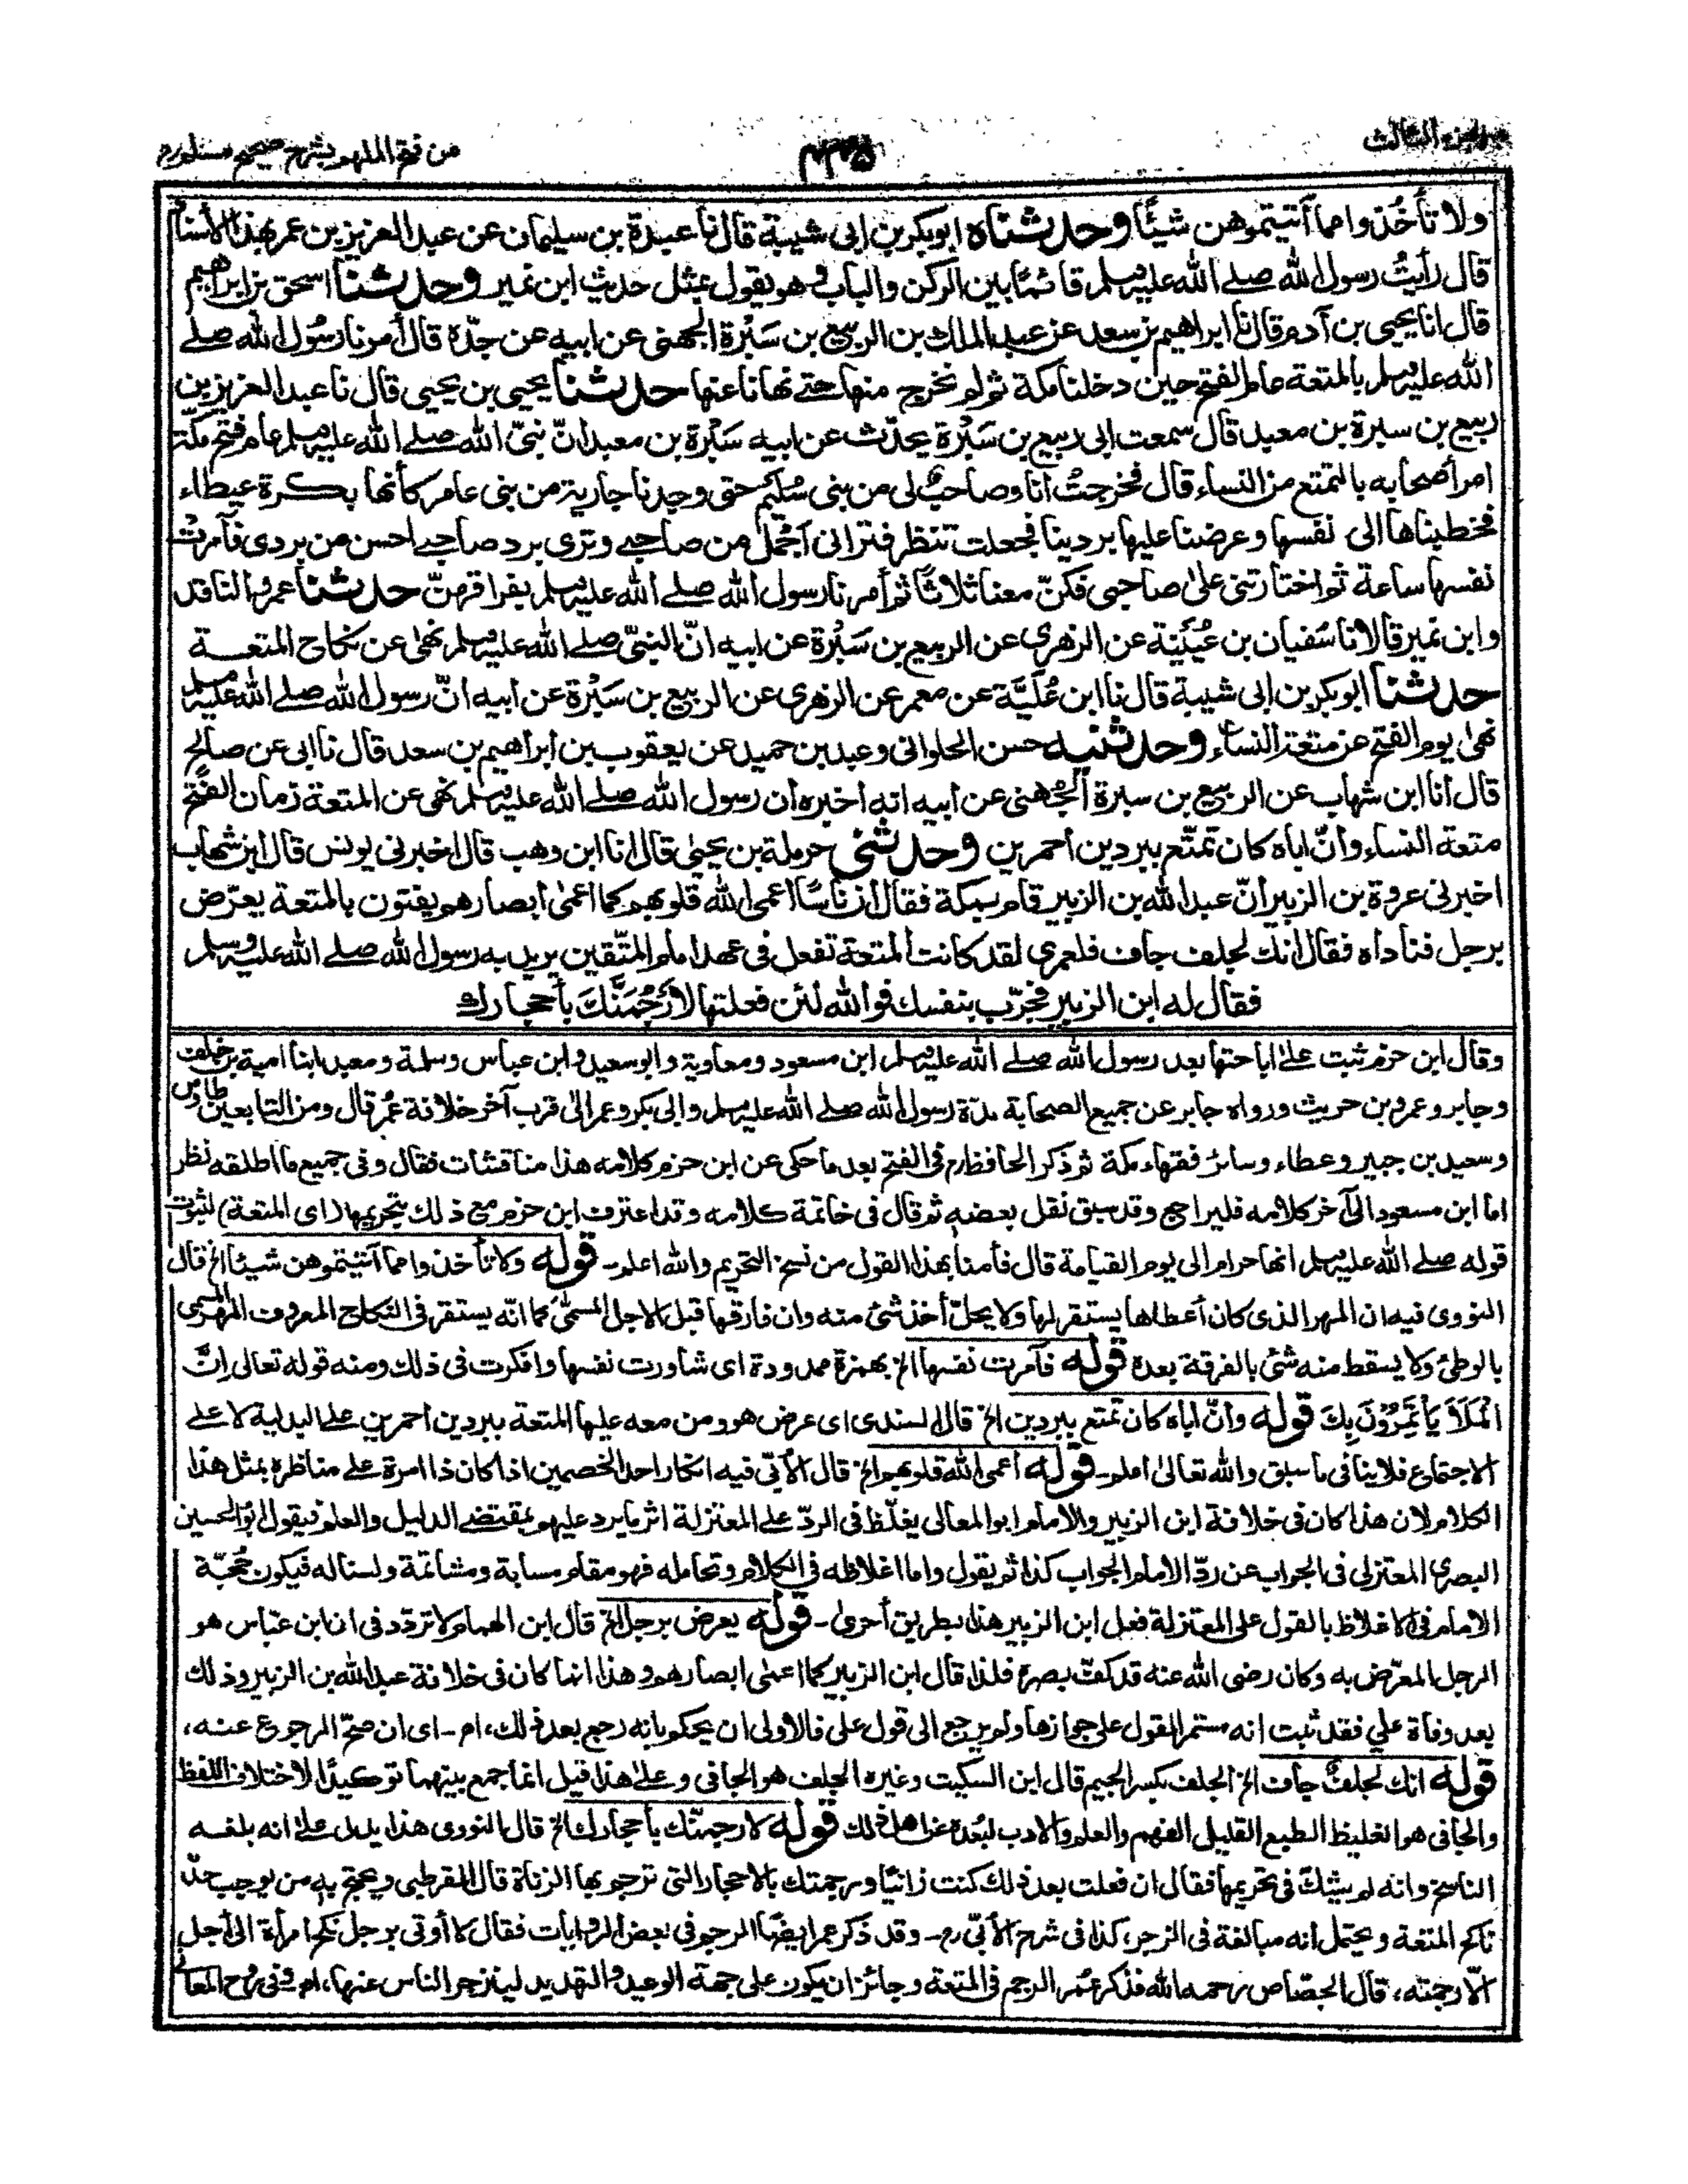 الجزء الثالث
من فتح الملهم بشرح صحيح مسلم
ولا تأخذوا مما آتيتموهن شيئًا وحدثناه ابوبكر بن ابى شيبة قال نا عبدة بن سليمان عن عبد العزيز بن عمر بهذا الأسناد
قال رأيتُ رسول الله صلے الله عليہ وسلم قائمًا بين الركن والباب وهو يقول بمثل حديث ابن نمير وحدثنا اسحق بن ابراهيم
قال انا يحيى بن آدم قال نا ابراهيم بن سعد عن عبد الملك بن الربيع بن سَبْرة الجهنى عن ابيه عن جدّه قال أمرنا رسُول الله صلے
الله عليہ وسلم بالمتعة عام الفتح حين دخلنا مكة ثم لم نخرج منها حتے نهانا عنها حدثنا يحيى بن يحيى قال نا عبد العزيز بن
ربيع بن سبرة بن معبد قال سمعت ابى ربيع بن سَبْرة يحدّث عن ابيه سَبْرة بن معبد انّ نبىّ الله صلے الله عليہ وسلم عام فتح مكّة
امر أصحابه بالتمتع من النساء قال فخرجتُ انا وصاحبٌ لى من بنى سُليم حتى وجدنا جارية من بنى عامر كأنها بكرة عيطاء
فخطبناها الى نفسها وعرضنا عليها بردينا فجعلت تنظر فترانى أجْمَلَ من صاحبے وترى برد صاحبے احسن من بردى فآمرتْ
نفسها ساعة ثم اختارتنى علىٰ صاحبى فكنّ معنا ثلاثًا ثم أمرنا رسول الله صلے الله عليہ وسلم بفراقهنّ حدثنا عمرو الناقد
وابن نمير قالا نا سُفيان بن عُيَيْنَة عن الزهرى عن الربيع بن سَبْرة عن ابيه انّ النبىّ صلے الله عليہ وسلم نهىٰ عن نكاح المتعة
حدثنا ابوبكر بن ابى شيبة قال نا ابن عُلَيَّة عن معمر عن الزهرى عن الربيع بن سَبْرة عن أبيه انّ رسول الله صلے الله عليہ وسلم
نهىٰ يوم الفتح عن متعة النساء وحدثنيه حسن الحلوانى وعبد بن حميد عن يعقوب بن ابراهيم بن سعد قال نا ابى عن صالح
قال أنا ابن شهاب عن الربيع بن سبرة الجُهنى عن أبيه انه أخبره أن رسول الله صلے الله عليہ وسلم نهى عن المتعة زمان الفتح
متعة النساء وأنّ اباه كان تمتّع ببردين أحمرين وحدثنى حرملة بن يحيىٰ قال انا ابن وهب قال اخبرنى يونس قال ابن شهاب
اخبرنى عروة بن الزبير أنّ عبد الله بن الزبير قام بمكة فقال ان ناسًا اعمى الله قلوبهم كما اعمىٰ أبصارهم يفتون بالمتعة يعرّض
برجل فناداه فقال انك لجلف جاف فلعمرى لقد كانت المتعة تفعل فى عهد امام المتّقين يريد به رسول الله صلے الله عليہ وسلم
فقال له ابن الزبير فجرّب بنفسك فوالله لئن فعلتها لأَرْجُمَنَّكَ بأحجارك
وقال ابن حزم ثبت علےٰ اباحتها بعد رسول الله صلے الله عليہ وسلم ابن مسعود ومعاوية وابوسعيد وابن عباس وسلمة ومعبد ابنا امية بن خلف
وجابر وعمرو بن حريث ورواه جابر عن جميع الصحابة مدّة رسول الله صلے الله عليہ وسلم وابى بكر وعمر الىٰ قرب آخر خلافة عُمر قال ومن التابعين طاوس
وسعيد بن جبير وعطاء وسائر فقهاء مكة ثم ذكر الحافظ رم فى الفتح بعد ما حكى عن ابن حزم كلامه هذا مناقشات فقال وفى جميع ما اطلقه نظر
اما ابن مسعود الىٰ آخر كلامه فليراجع وقد سبق نقل بعضه ثم قال فى خاتمة كلامه وقد اعترف ابن حزم مع ذلك بتحريمها (اى المتعة) لثبوت
قوله صلے الله عليہ وسلم انها حرام الى يوم القيامة قال فأمنا بهذا القول من نسخ التحريم والله اعلم- قوله ولا تأخذوا مما آتيتموهن شيئا الخ قال
النووى فيه ان المهر الذى كان أعطاها يستقر لها ولا يحلّ أخذ شئ منه وان فارقها قبل الاجل المسمّىٰ كما انّه يستقر فى النكاح المعروف المهر المسمى
بالوطئ ولا يسقط منه شئ بالفرقة بعده قوله فآمرت نفسها الخ بهمزة ممدودة اى شاورت نفسها وافكرت فى ذلك ومنه قوله تعالى اِنَّ
الْمَلَأَ يَأْتَمِرُوْنَ بِكَ قوله وأنّ اباه كان تمتع ببردين الخ قال السندى اى عرض هو ومن معه عليها المتعة ببردين أحمرين علے البدلية لا علے
الاجتماع فلا ينافى ما سبق والله تعالىٰ اعلم- قوله أعمى الله قلوبهم الخ قال الأبّى فيه انكار احد الخصمين اذا كان ذا امرة علے مناظره بمثل هذا
الكلام لان هذا كان فى خلافة ابن الزبير والامام ابو المعالى يغلّظ فى الردّ علے المعتزلة اثر ما يرد عليهم بمقتضے الدليل والعلم فيقول ابو الحسين
البصرى المعتزلى فى الجواب عن ردّ الامام الجواب كذا ثم يقول واما اغلاظه فى الكلام وتحامله فهو مقام مسابة ومشاتمة ولسنا له فيكون حُجّة
الامام فى الاغلاظ بالقول على المعتزلة فعل ابن الزبير هذا بطريق أحرىٰ- قوله يعرض برجل الخ قال ابن الهمام لا تردّد فى ان ابن عبّاس هو
الرجل المعرّض به وكان رضى الله عنه قد كفّ بصره فلذا قال ابن الزبير كما اعمى ابصارهم وهذا انما كان فى خلافة عبد الله بن الزبير وذلك
بعد وفاة علي فقد ثبت انه مستمر القول على جوازها ولم يرجع الى قول على فالاولى ان يحكم بانه رجع بعد ذلك، اھ- اى ان صحّ الرجوع عنه،
قوله انك لجلفٌ جاف الخ الجلف بكسر الجيم قال ابن السكيت وغيره الجلف هو الجافى وعلےٰ هذا قيل انما جمع بينهما توكيدًا لاختلاف اللفظ
والجافى هو الغليظ الطبع القليل الفهم والعلم والادب لبُعده عن اهل ذلك قوله لارجمنّك بأحجارك الخ قال النووى هذا يدل علےٰ انه بلغه
الناسخ وانه لم يشكّ فى تحريمها فقال ان فعلت بعد ذلك كنت زانيًا ورجمتك بالاحجار التى ترجم بها الزناة قال القرطبى ويحتج به من يوجب حدّ
ناكح المتعة ويحتمل انه مبالغة فى الزجر، كذا فى شرح الأبّى رم- وقد ذكر عمر ايضًا الرجم فى بعض الروايات فقال لا أوتى برجل نكح امرأة الى أجل
الّا رجمته، قال الجصّاص رحمه الله فذكر عُمر الرجم فى المتعة وجائز ان يكون على جهة الوعيد والتهديد لينزجر الناس عنها، اھ وفى روح المعانى